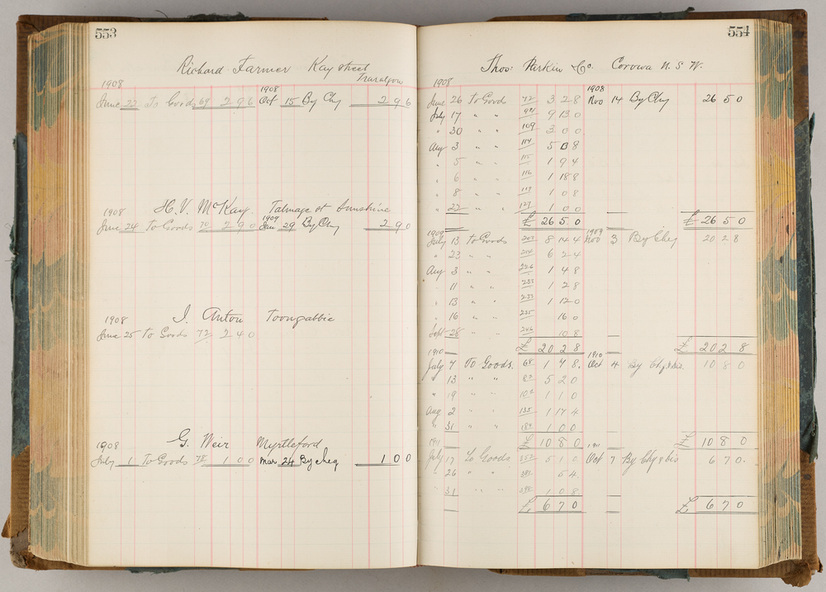 553
Richard Farmer Kay street
Traralgon
1908
June 22 To Goods 69 2 9 6
1908
Oct 15 By Chq 2 9 6
H. V. McKay Talmage st Sunshine
1908
June 24 To Goods 2 9 0
1909
Jan 29 By Chq 2 9 0
J. Anton Toongabbie
1908
June 25 To Goods 72 2 4 0
G. Weir Myrtleford
1908
July 1 To Goods 1 0 0
Mar 24 By cheq 1 0 0
554
Thos: Parkin & Co. Corowa N. S. W.
1908
June 26 to Good 72 3 2 8
1908
Nov 14 By Chq 26 5 0
July 17 " " 9 13 0
" 30 " " 109 3 0 0
Aug 3 " " 114 5 8
" 5 " " 115 1 9 4
" 6 " " 116 1 18 8
" 8 " " 117 1 0 8
" 22 " " 1 0 0
£ 26 5 0 £ 26 5 0
1909
July 13 to Goods 8 14 4
1909
Nov 3 By Cheq 20 2 8
" 23 " " 6 2 4
Aug 3 " " 226 1 4 8
" 11 " " 1 2 8
" 13 " " 1 12 0
" 16 " " 16 0
Sept 28 10 8
£ 20 2 8 £ 20 2 8
1910
July 7 To Goods. 68 1 4 8
1910
Oct 4 By Chq & dis 10 8 0
" 13 " " 5 2 0
" 19 " " 1 1 0
Aug 2 " " 1 17 4
" 31 " " 1 0 0
£ 10 8 0 £ 10 8 0
1911
July 17 To Goods 5 1 0
Oct 7 By Chq & dis 6 7 0
" 26 " " 5 4
" 31 " " 1 0 8
£ 6 7 0 £ 6 7 0